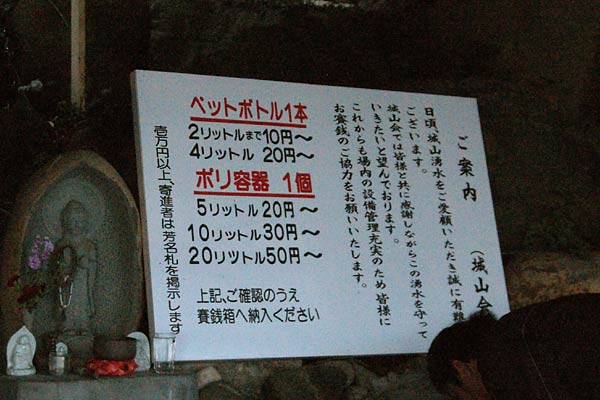 ご案内
(城山会
日頃、城山湧水をご愛願いただき誠に有難
ございます。
城山会では皆様と共に感謝しながらこの湧水を守って
いきたいと望んでおります。
これからも場内の設備管理充実のため皆様に
お賽銭のご協力をお願いいたします。
ペットボトル1本
2リットルまで10円〜
4リットル 20円〜
ポリ容器 1個
5リットル 20円〜
10リットル 30円〜
20リットル 50円〜
上記、ご確認のうえ
賽銭箱へ納入ください
壱万円以上、寄進者は芳名札を掲示します